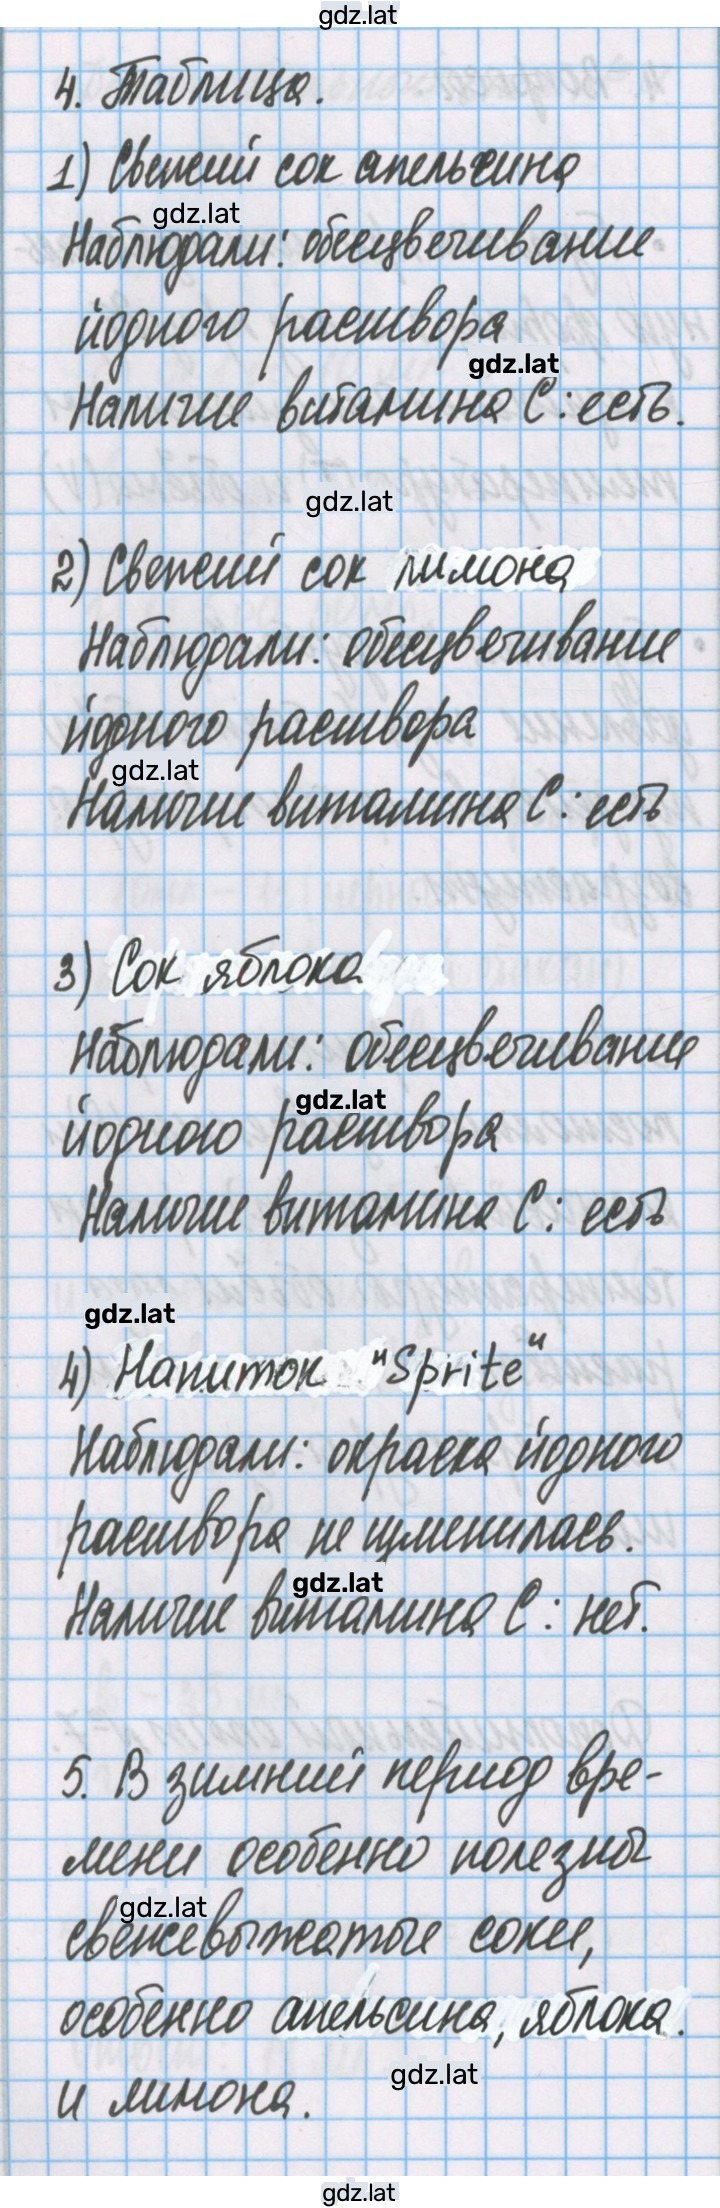 gdz.lat
4. Таблица.
1) Свежий сок апельсина
gdz.lat
Наблюдали: обесцвечивание
йодного раствора
gdz.lat
Наличие витамина С: есть.
gdz.lat
2) Свежий сок лимона
Наблюдали: обесцвечивание
йодного раствора
gdz.lat
Наличие витамина С: есть
3) Сок яблока
Наблюдали: обесцвечивание
gdz.lat
йодного раствора
Наличие витамина С: есть
gdz.lat
4) Напиток "Sprite"
Наблюдали: окраска йодного
раствора не изменилась.
gdz.lat
Наличие витамина С: нет.
5. В зимний период вре-
мени особенно полезны
gdz.lat
свежевыжатые соки,
особенно апельсина, яблока.
gdz.lat
и лимона.
gdz.lat